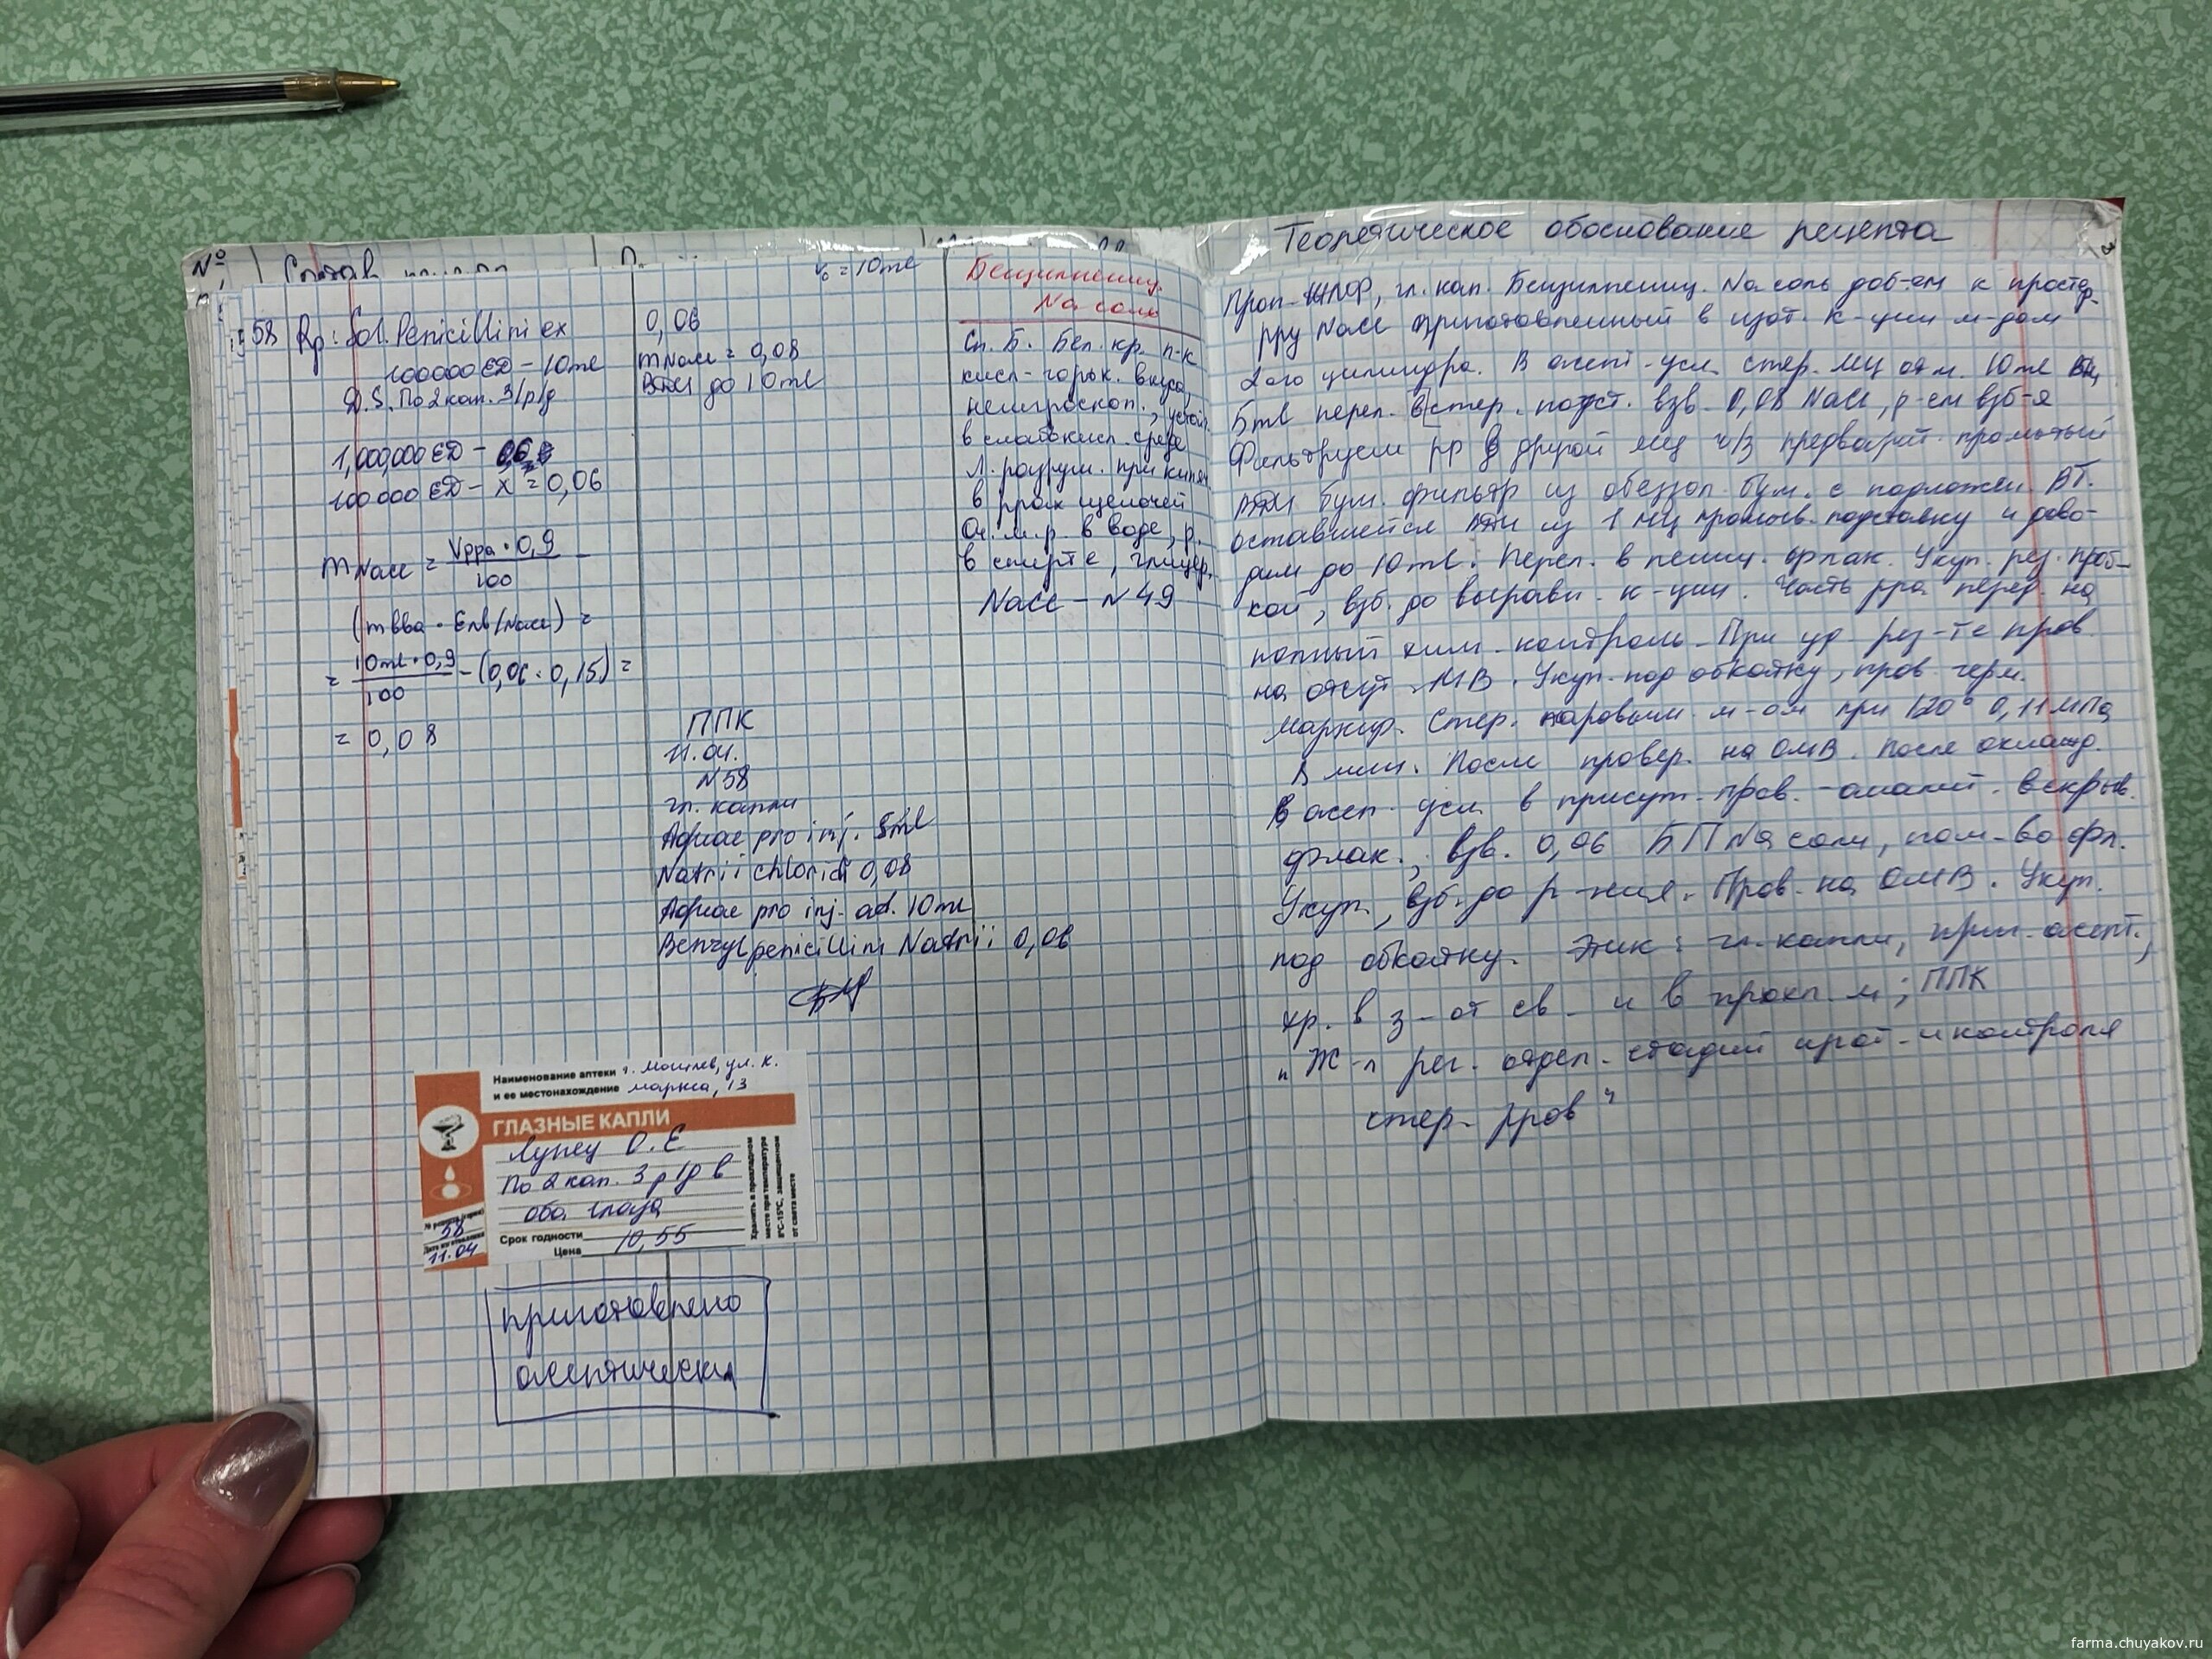 №
Состав
58 Rp: Sol. Penicillini ex
100000 ЕД – 10ml
D.S. По 2 кап. 3/р/д
1,000,000 ЕД –
100 000 ЕД – x = 0,06
m NaCl = Vрра · 0,9
100
(mвва · Eпв/NaCl) =
= 10ml · 0,9 – (0,06 · 0,15) =
100
= 0,08
V₀ = 10ml
0,06
mNaCl = 0,08
ВДИ до 10ml
ППК
11.04.
N58
гл. капли
Aquae pro inj. 5ml
Natrii chloridi 0,08
Aquae pro inj. ad. 10ml
Benzylpenicillini Natrii 0,06
Бензилпениц.
Na соль
Сп. Б. Бел. кр. п-к
кисл-горьк. вкуса,
негигроскоп., устой
в слабокисл. среде
Л. разруш. при кипяч
в ррах щелочей
Оч. л.р. в воде, р.
в спирте, глицер.
NaCl – N49
Наименование аптеки г. Могилев, ул. К.
и ее местонахождение Маркса, 13
ГЛАЗНЫЕ КАПЛИ
Лупец О.Е
По 2 кап. 3 р/д в
оба глаза
Срок годности
Цена 10,55
№ рецепта (серии)
58
Дата изготовления
11.04
Хранить в прохладном
месте при температуре
8°С-15°С, защищенном
от света месте
приготовлено
асептически
Теоретическое обоснование рецепта
3
Проп- ЖЛФ, гл. кап. Бензилпениц. Na соль доб-ем к простер.
рру NaCl приготовленный в изот. к-ции м-дом
2ого цилиндра. В асепт-усл. стер. МЦ отм. 10ml
5ml перел. в стер. подст. взв. 0,08 NaCl, р-ем взб-я
Фильтруем рр в другой МЦ ч/з предварит. промытый
ВДИ бум. фильтр из обеззол. бум. с подложен ВТ.
оставшейся ВДИ из 1 МЦ промыв. подставку и дово-
дим до 10ml. Перел. в пениц. флак. Укуп. рез. проб-
кой, взб. до выравн. к-ции. Часть рра перед. на
полный хим. контроль. При уд рез-те пров.
на отсут. МВ. Укуп. под обкатку, пров. герм.
Маркир. Стер. паровым м-ом при 120° 0,11 мПа
8 мин. После провер. на ОМВ. После охлажд.
в асеп. усл в присут. пров. -аналит. вскрыв.
флак., взв. 0,06 БП Na соли, пом-во фл.
Укуп., взб. до р-ния. Пров. на ОМВ. Укуп.
под обкатку. Этик: гл. капли, приг. асепт.,
хр. в з-от св - и в прохл. м; ППК
"Ж-л рег. отдел. стадий изгот-и контроля
стер- рров"
farma.chuyakov.ru